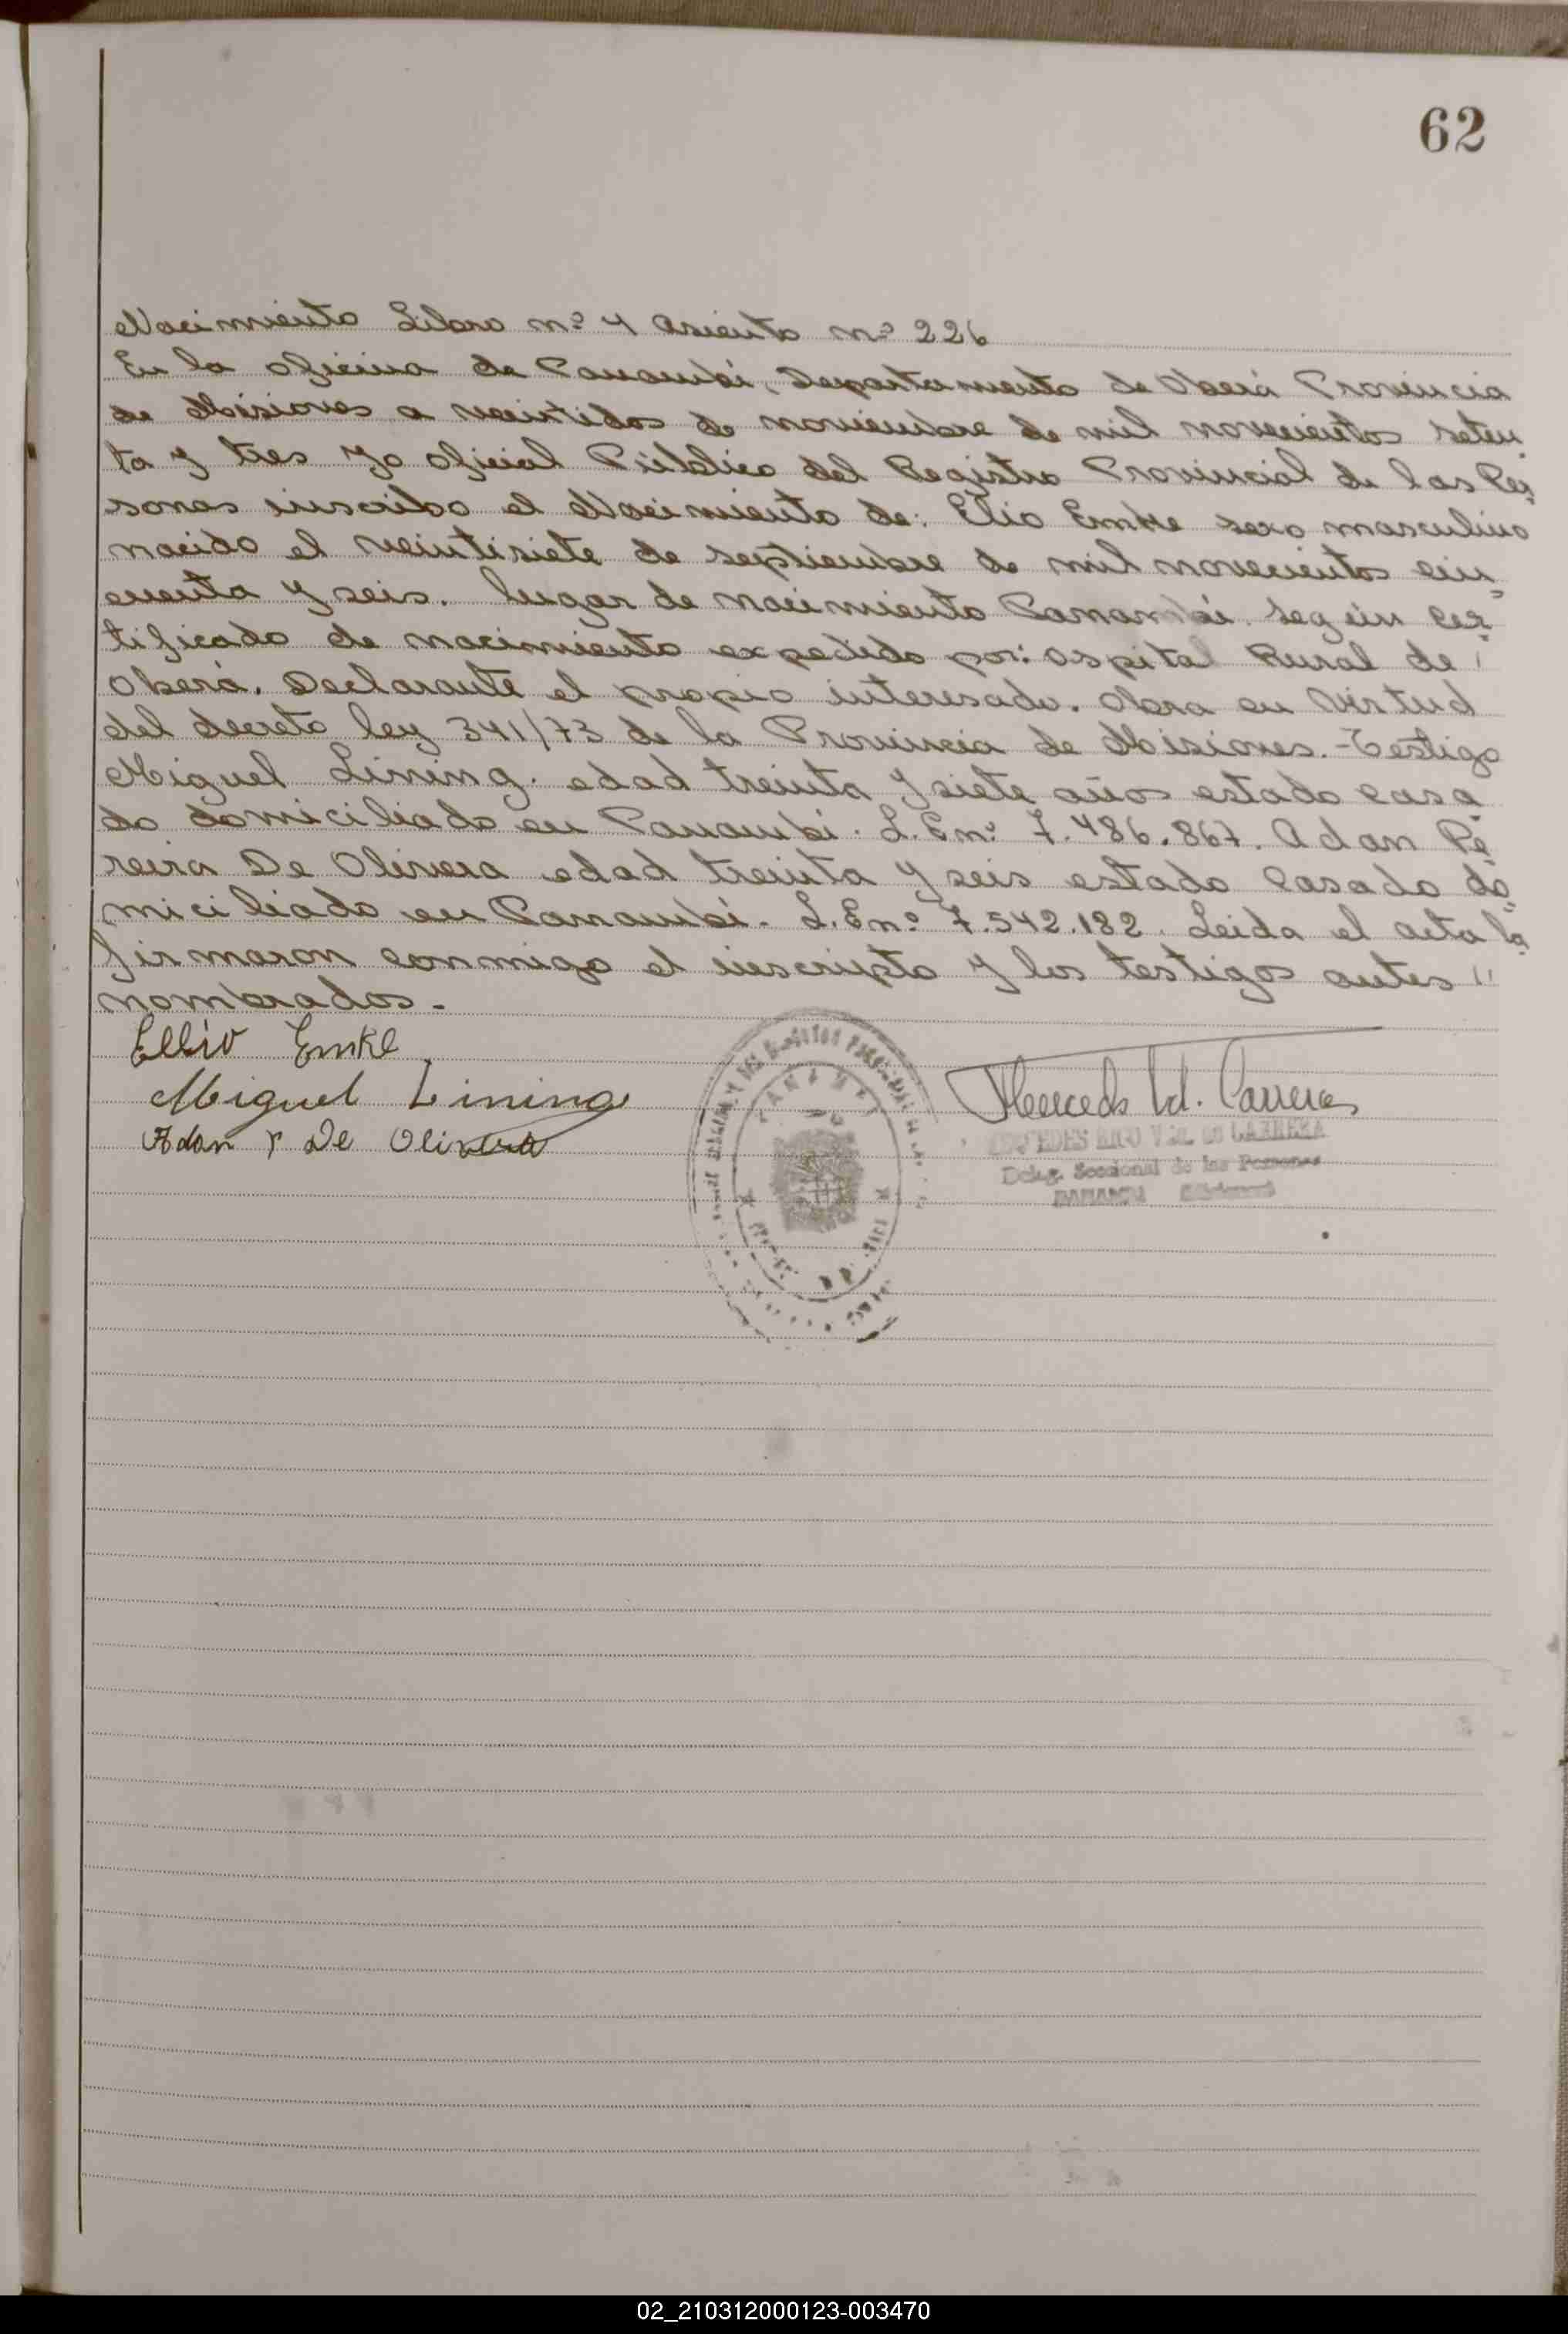 62
Nacimiento Libro nº 4 Asiento nº 226
En la oficina de Panambí, Departamento de Oberá Provincia
de Misiones a veintidos de noviembre de mil novecientos seten-
ta y tres yo Oficial Público del Registro Provincial de las Per-
sonas inscribo el Nacimiento de: Elio Emke sexo masculino
nacido el veintisiete de septiembre de mil novecientos cin-
cuenta y seis. lugar de nacimiento Panambí. según cer-
tificado de nacimiento expedido por: Ospital Rural de
Oberá. Declarante el propio interesado. Obra en Virtud
del decreto ley 341/73 de la Provincia de Misiones.- Testigo
Miguel Lining. edad treinta y siete años estado casa
do domiciliado en Panambí. L.E nº 7.486.867. Adan Pe-
reira De Olivera edad treinta y seis estado casado do-
miciliado en Panambí. L.E nº 7.542.182. Leida el acta la
firmaron conmigo el inscripto y los testigos antes "
nombrados.-
Ellio Emke
Miguel Lining
Adan P De Olivera
PANAMBI
Mercedes Vd. Carrera
MERCEDES RICO VDA. DE CARRERA
Deleg. Seccional de las Personas
PANAMBI Misiones
02_210312000123-003470